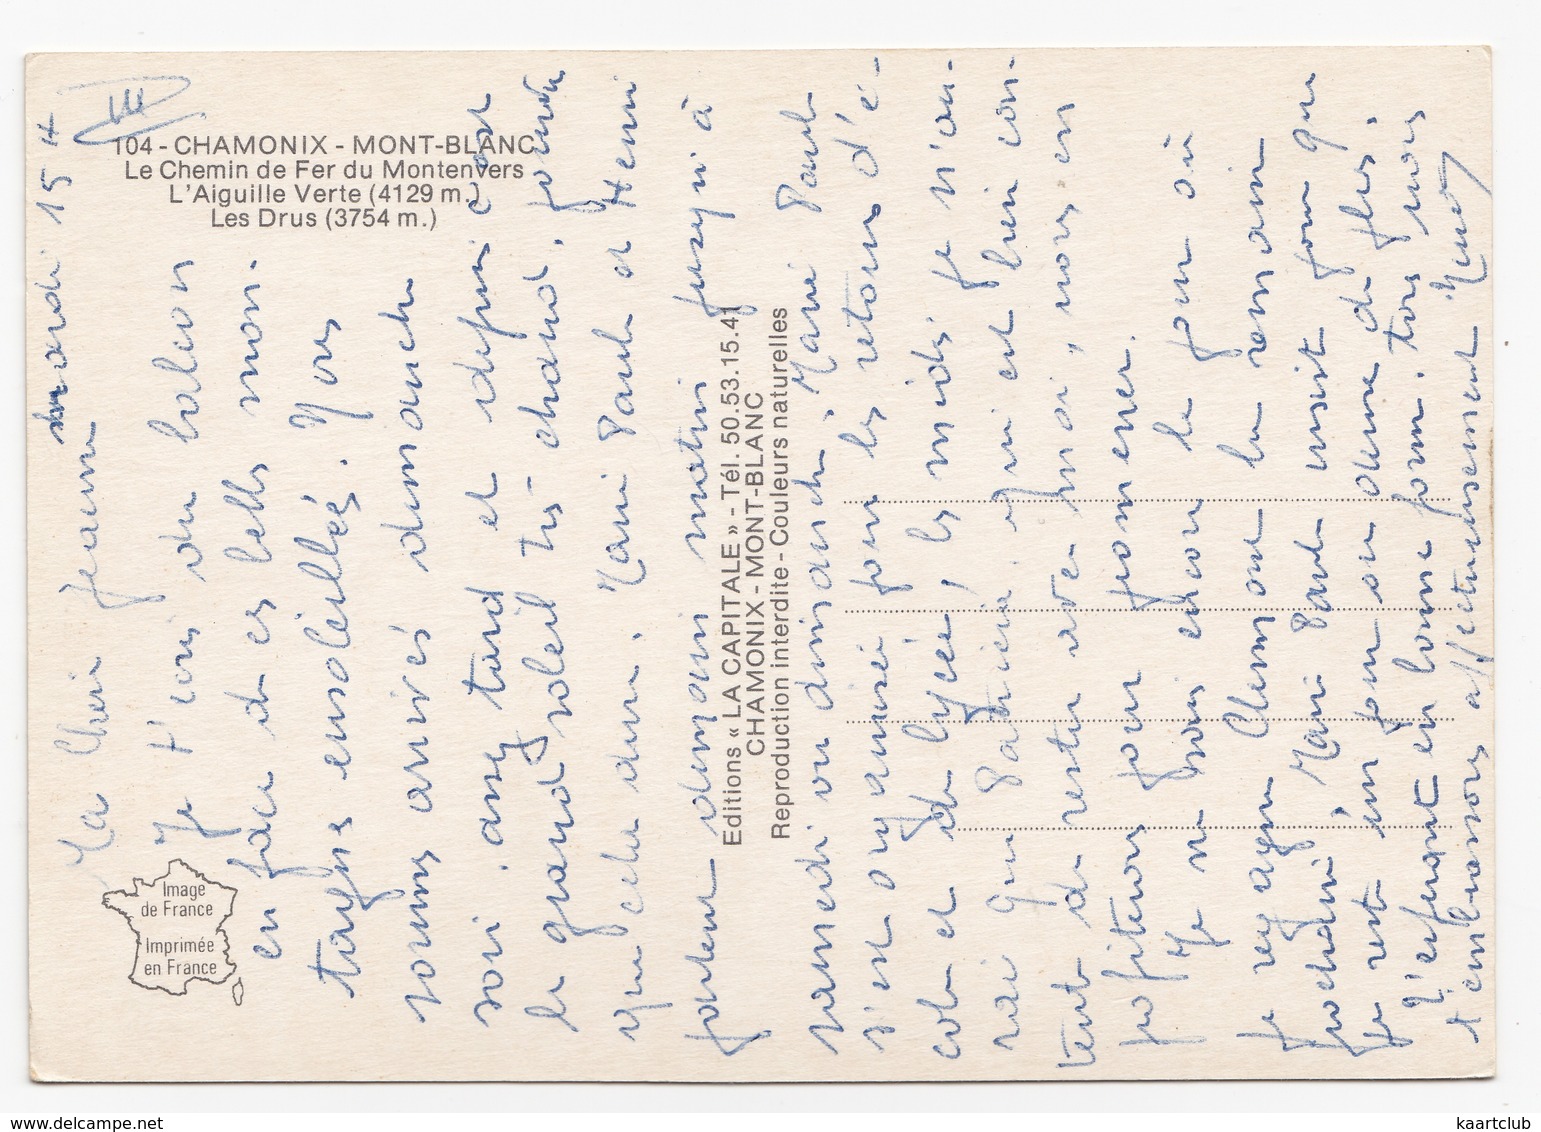 104 - CHAMONIX - MONT-BLANC
Le Chemin de Fer du Montenvers
L'Aiguille Verte (4129 m.)
Les Drus (3754 m.)
Image
de France
Imprimée
en France
Editions « LA CAPITALE » - Tél. 50.53.15.41
CHAMONIX - MONT-BLANC
Reproduction interdite - Couleurs naturelles
mardi 15 H
Ma Chère Jeanne
Je t'écris du balcon
en face de ces belles mon-
tagnes ensoleillées. Nous
sommes arrivés dimanche
soir assez tard et depuis c'est
le grand soleil très chaud. pourvu
que cela dure. Marie Paule et Henri
partent demain matin jusqu'à
samedi ou dimanche, Marie Paule
s'est organisée pour les retours d'é-
cole et de lycée, les midis je n'au-
rai que Patricia qui est bien con-
tente de rester avec moi, nous en
profiterons pour promener.
Je ne sais encore le jour où
je regagne Clermont la semaine
prochaine, Marie Paule voudrait que
je reste un jour ou deux de plus.
J'espère en bonne forme. tous nous
t'embrassons affectueusement
kaartclub